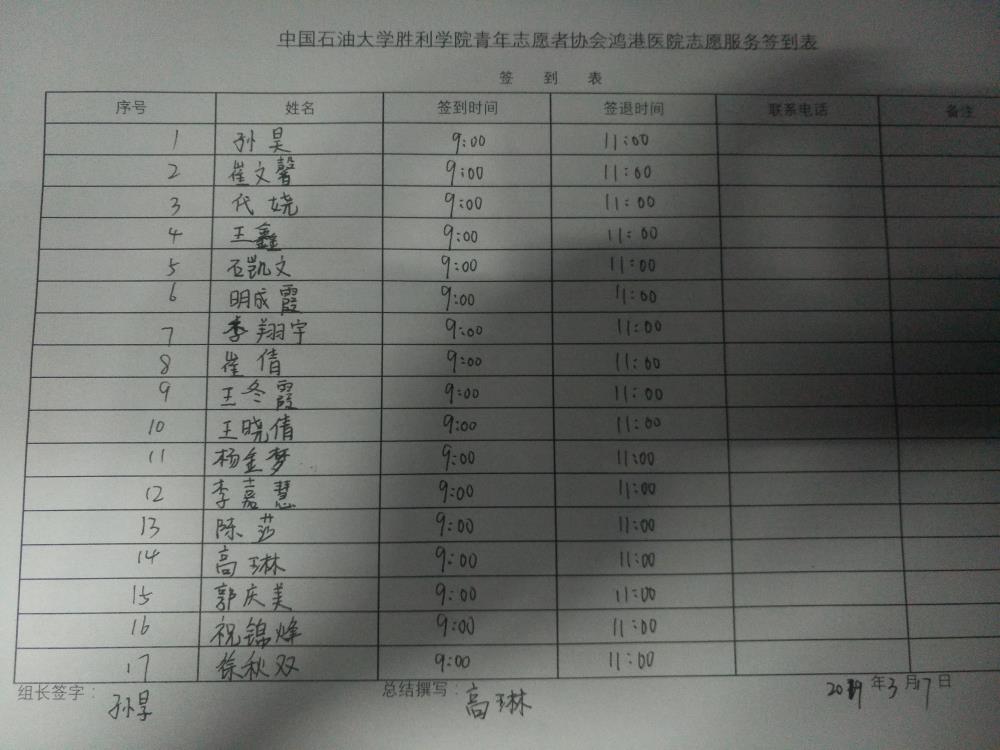 中国石油大学胜利学院青年志愿者协会鸿港医院志愿服务签到表
签 到 表
序号 姓名 签到时间 签退时间 联系电话 备注
1 孙昊 9:00 11:00
2 崔文馨 9:00 11:00
3 代娆 9:00 11:00
4 王鑫 9:00 11:00
5 石凯文 9:00 11:00
6 明成霞 9:00 11:00
7 李翔宇 9:00 11:00
8 崔倩 9:00 11:00
9 王冬霞 9:00 11:00
10 王晓倩 9:00 11:00
11 杨金梦 9:00 11:00
12 李嘉慧 9:00 11:00
13 陈莎 9:00 11:00
14 高玉琳 9:00 11:00
15 郭庆美 9:00 11:00
16 祝锦烽 9:00 11:00
17 徐秋双 9:00 11:00
组长签字：孙昊 总结撰写：高玉琳 2019年3月17日